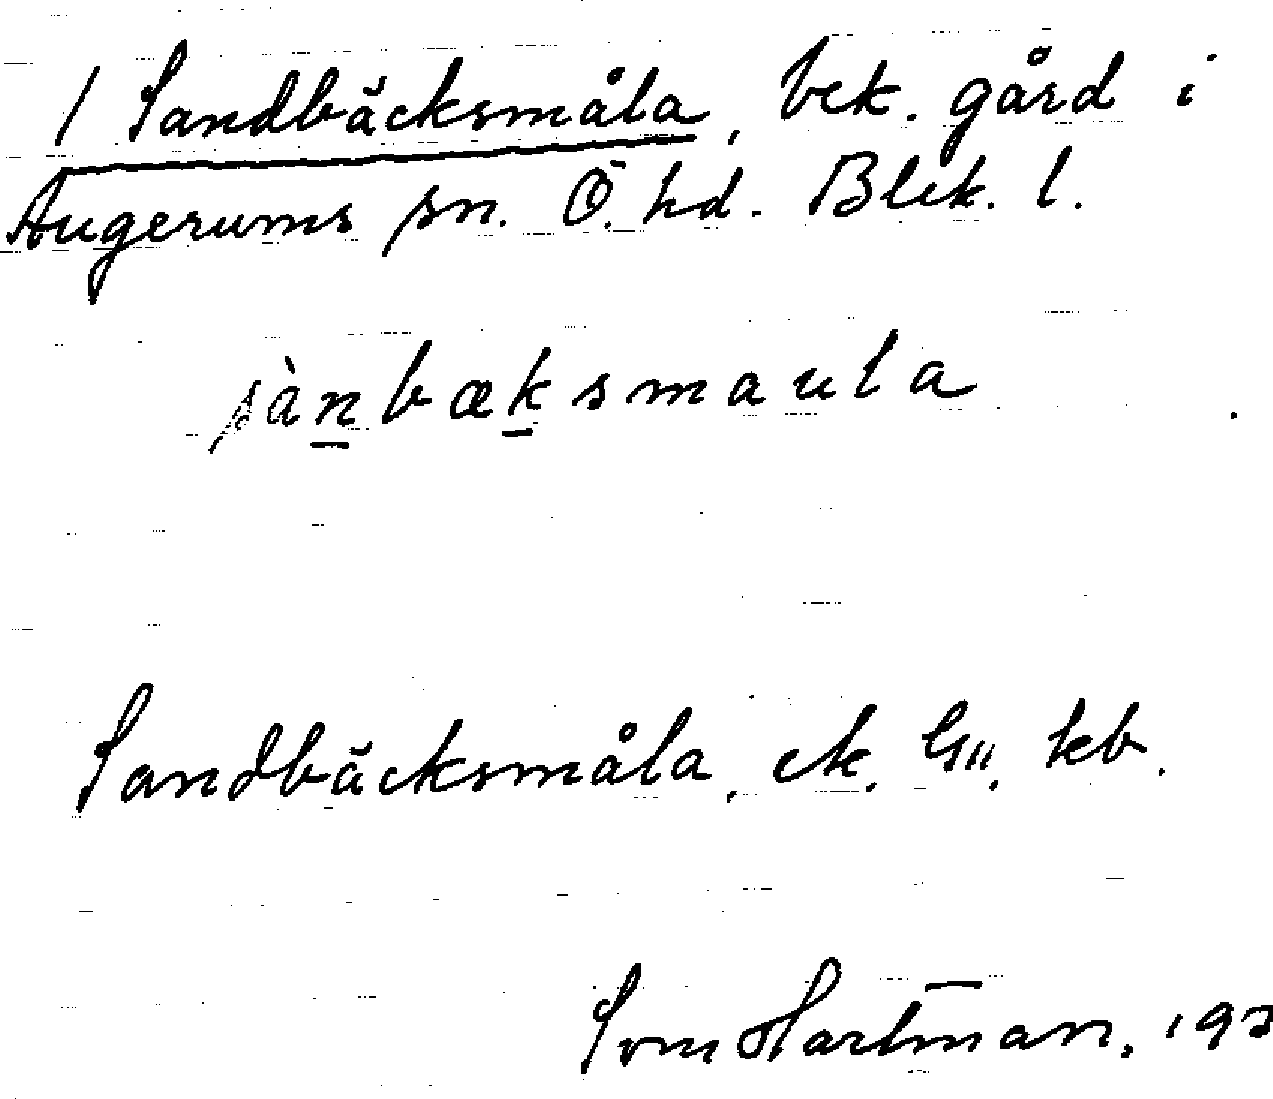 / Sandbäcksmåla, bek. gård i
Augerums sn. Ö. hd. Blek. l.
sànbæksmaula
Sandbäcksmåla, ek. G11. kb.
Sven Hartman, 193